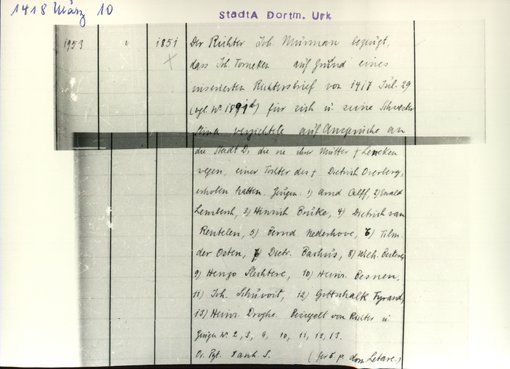 1418 März 10
StadtA Dortm. Urk
1953 " 1851 Der Richter Joh. Murman bezeugt,
dass Joh. Torneken auf Grund eines
inserierten Richtersbrief von 1417 Jul. 29
(vgl. Nr 1891b) für sich u. seine Schwester
verzichtete auf Ansprüche an
die Stadt D., die sie ihrer Mutter † Leneken
wegen, einer Tochter des † Dietrich Overberg,
erhoben hatten. Zeugen: 1) Arnd Calff, 2) Ewald
Lembergh, 3) Heinrich Brüke, 4) Dietrich van
Rentelen, 5) Bernd Nederhove, 6) Tilm.
der Osten, 7) Dietr. Backus, 8) Wilh.
9) Henzo Slechtere, 10) Heinr. Besnen,
11) Joh. Schüvort, 12) Gottschalk
13) Heinr. Droghe. Besiegelt von Richter u.
Zeugen Nr. 2, 3, 9, 10, 11, 12, 13.
Or. Pgt. S. (fer. 6. p. dom. Letare.)